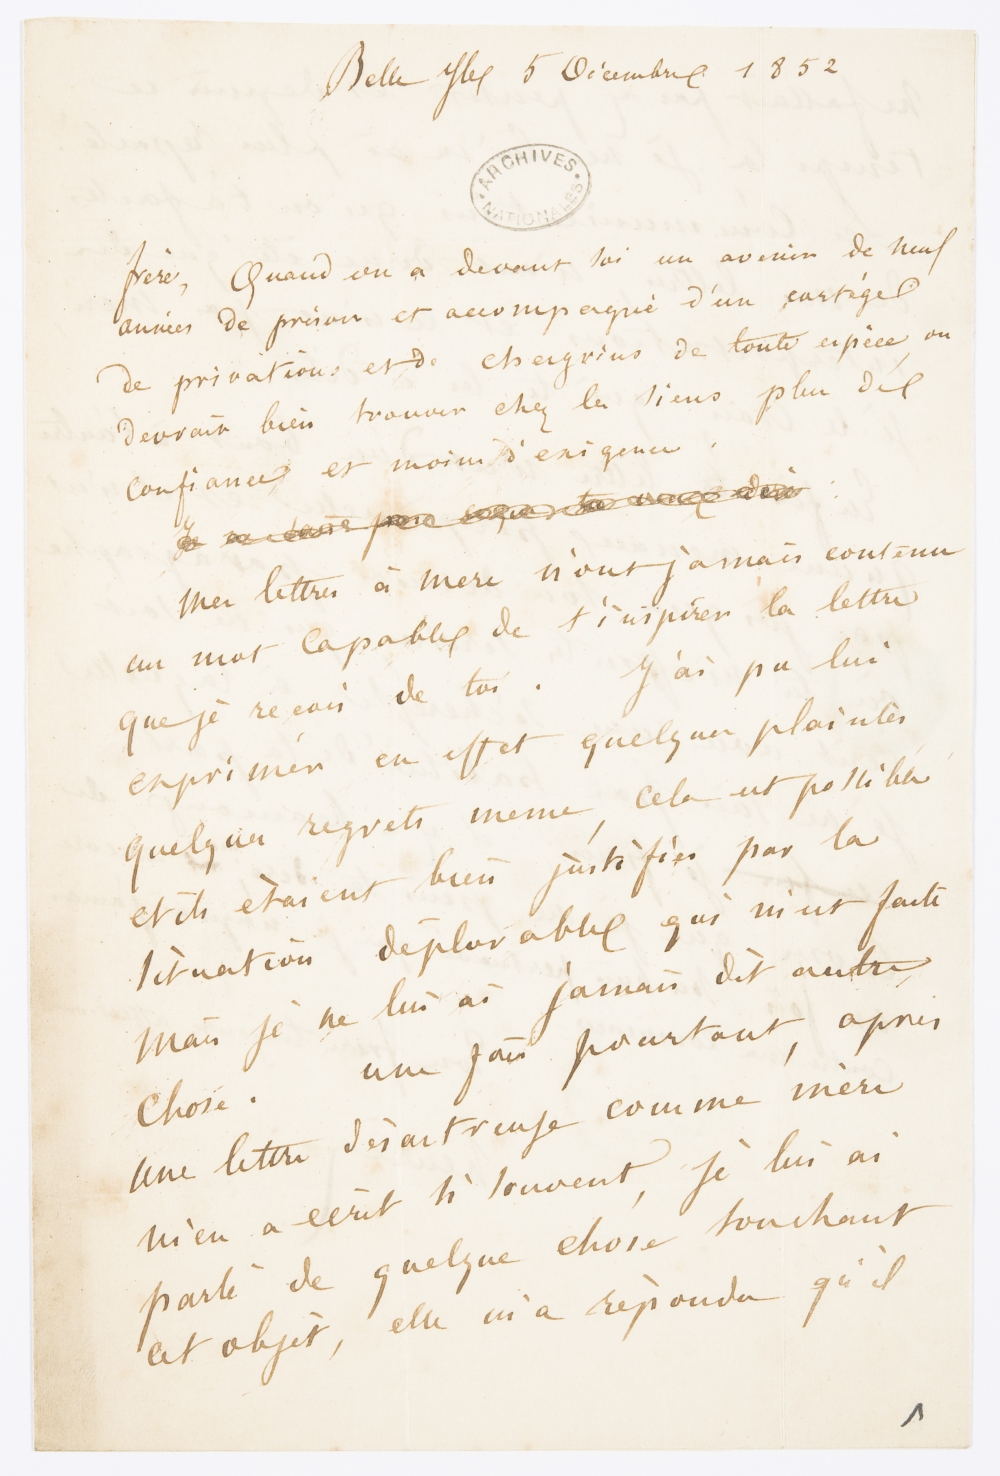 Belle Isle 5 Décembre 1852
ARCHIVES NATIONALES
frère, Quand on a devant soi un avenir de neuf
années de prison et accompagné d'un cortége
de privations et de chagrins de toute espèce, on
devrait bien trouver chez les siens plus de
confiance et moins d'éxigence.
Je
Mes lettres à mere n'ont jamais contenu
un mot capable de t'inspirer la lettre
que je reçois de toi. J'ai pu lui
exprimer en effet quelques plaintes
quelques regrets meme, cela est possible
et ils étaient bien justifiés par la
situation déplorable qui m'est faite
mais je ne lui ai jamais dit autre
chose. une fois pourtant, après
une lettre désastreuse comme mère
m'en a ecrit si souvent, je lui ai
parlé de quelque chose touchant
cet objet, elle m'a répondu qu'il
1